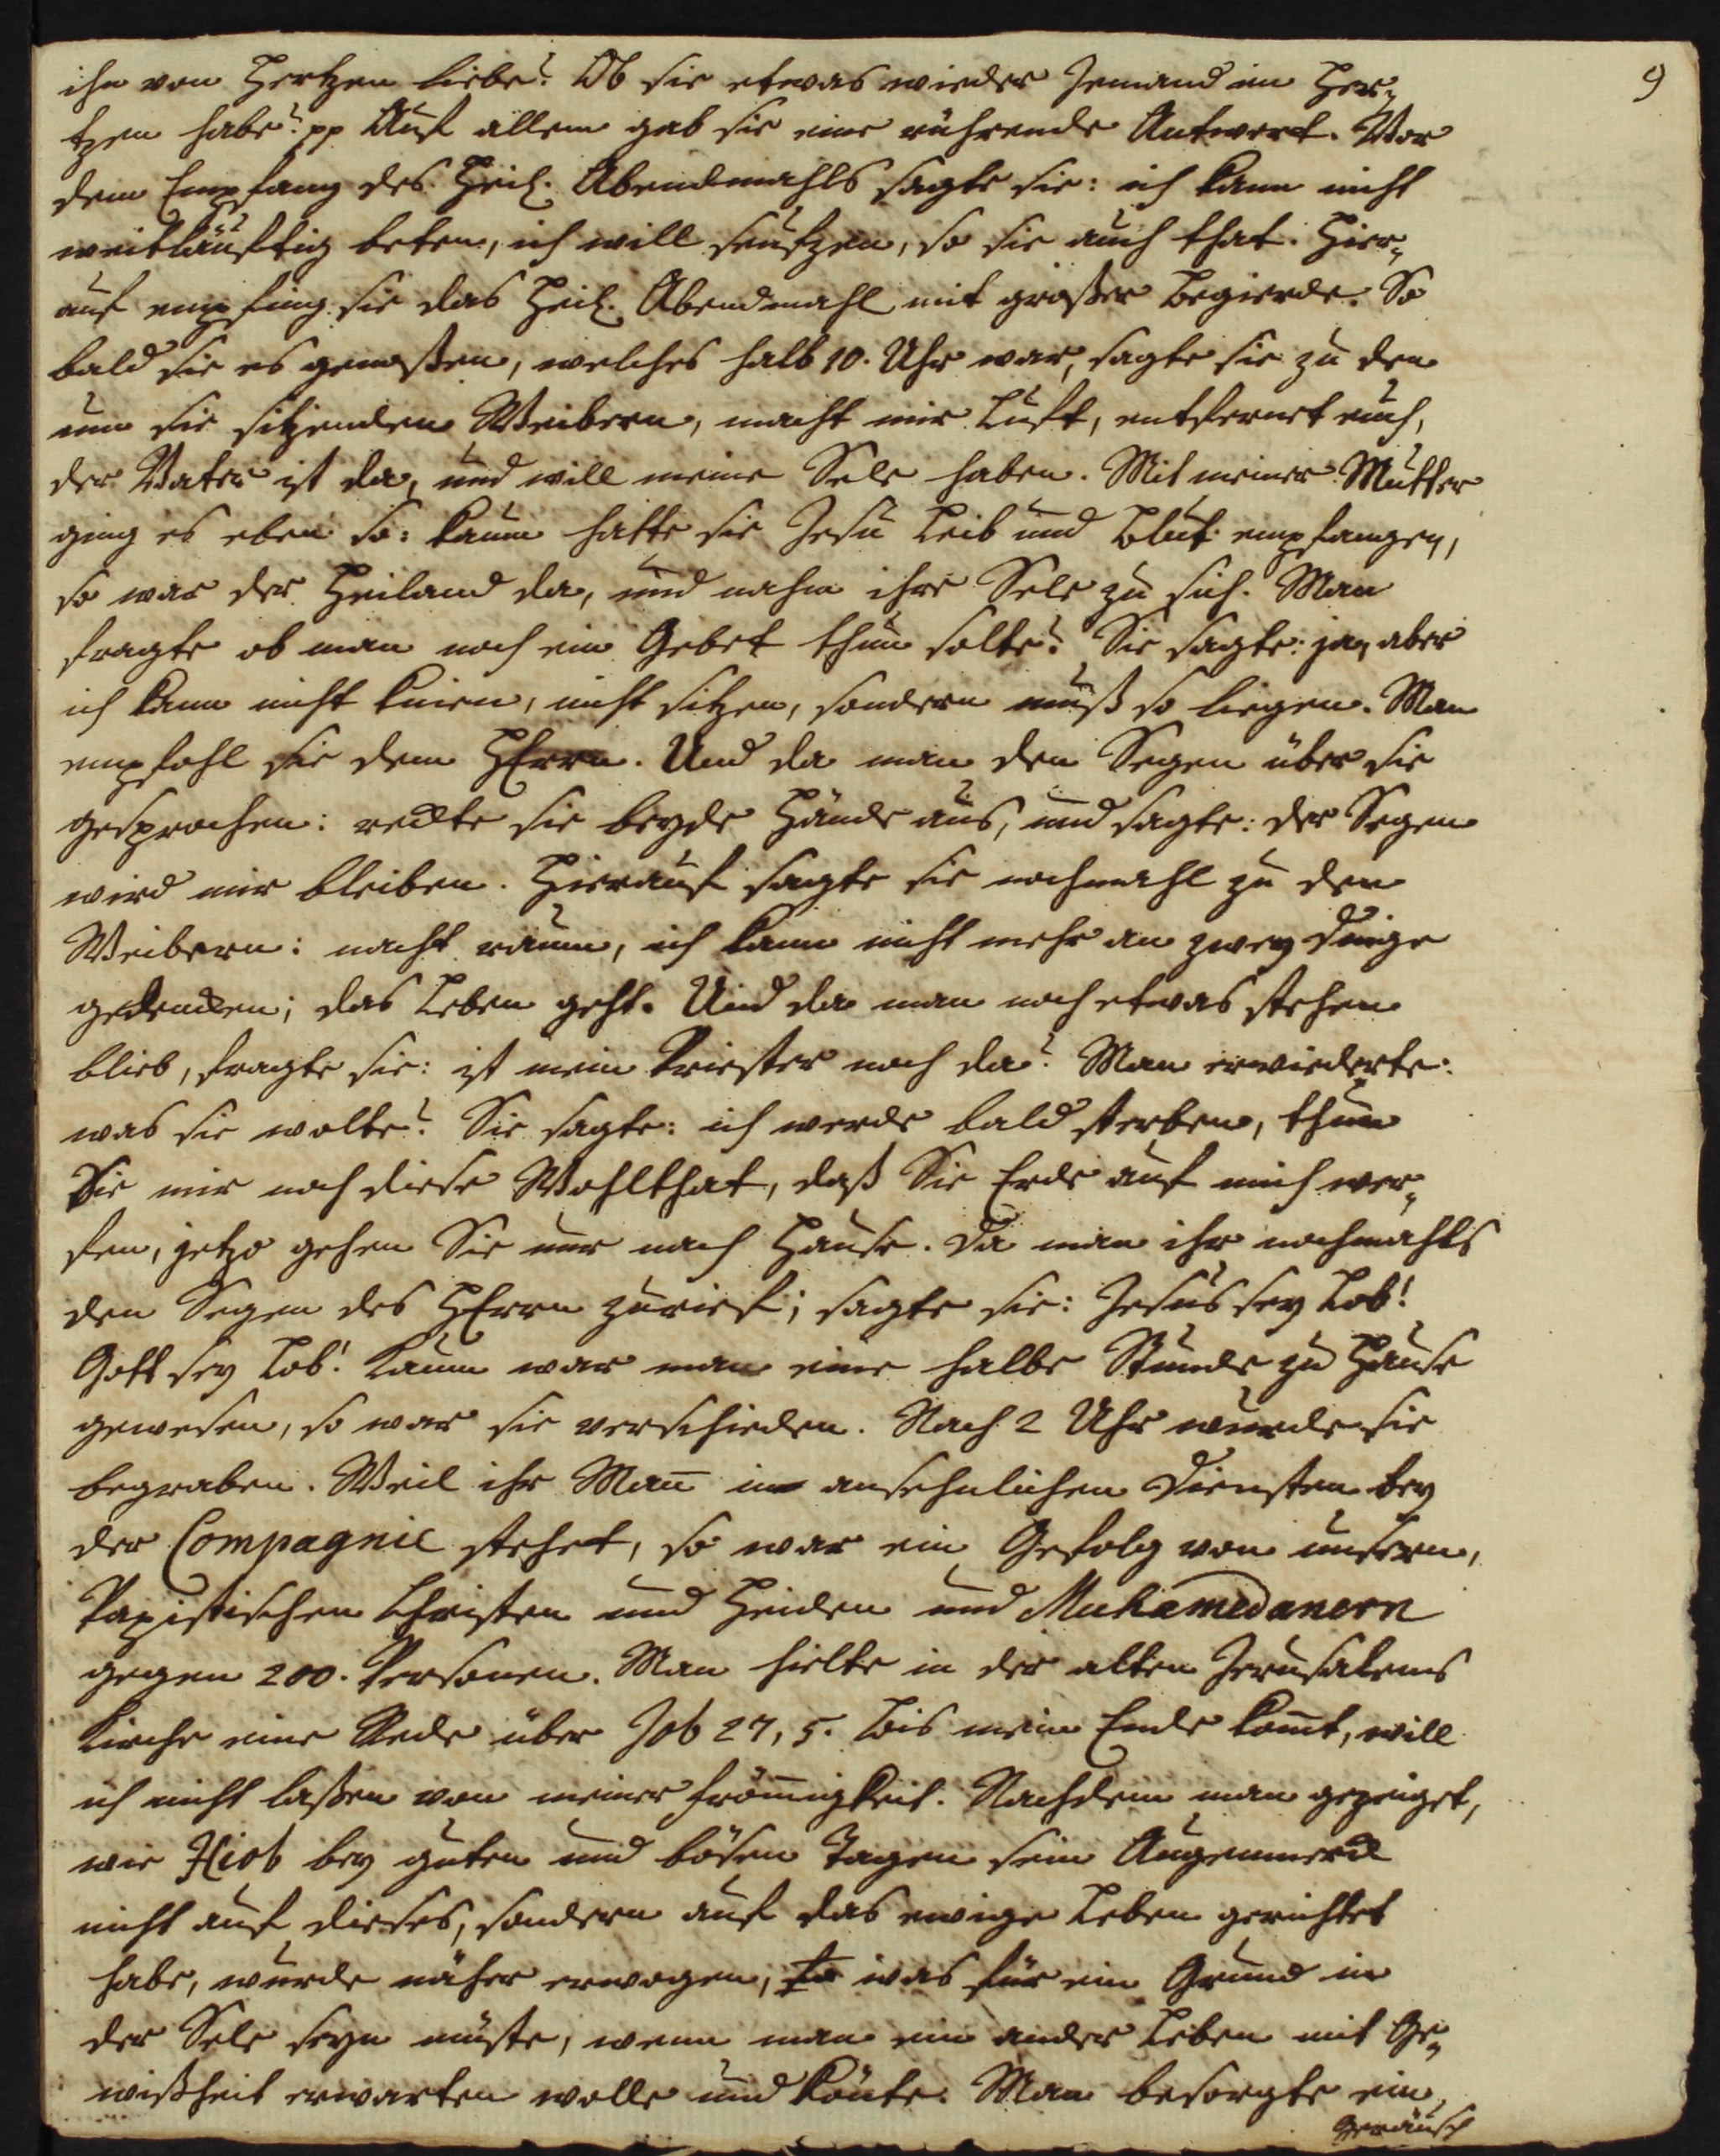 9
ihn von Hertzen liebe? Ob sie etwas wieder Jemand im Her-
tzen habe? pp Auf allem gab sie eine rührende Antwort. Vor
dem Empfang des Heil. Abendmahls sagte sie: ich kann nicht
weitläuftig beten, ich will seufzen, so sie auch that. Hier-
auf empfing sie das Heil. Abendmahl mit großer Begierde. So
bald sie es genoßen, welches halb 10. Uhr war, sagte sie zu den
um sie sitzenden Weibern, macht mir Luft, entfernet euch,
der Vater ist da, und will meine Sele haben. Mit meiner Mutter
ging es eben so: kaum hatte sie Jesu Leib und Blut empfangen,
so war der Heiland da, und nahm ihre Sele zu sich. Man
fragte ob man noch ein Gebet thun solte? Sie sagte: ja, aber
ich kann nicht knien, nicht sitzen, sondern muß so liegen. Man
empfohl sie dem HErrn. Und da man den Segen über sie
gesprochen: reckte sie beyde Hände aus, und sagte: der Segen
wird mir bleiben. Hierauf sagte sie nochmahl zu den
Weibern: macht raum, ich kann nicht mehr an zwey Dinge
gedencken; das Leben geht. Und da man noch etwas stehen
blieb, fragte sie: ist mein Priester noch da? Man erwiederte:
was sie wolte? Sie sagte: ich werde bald sterben, thun
Sie mir noch diese Wohlthat, daß Sie Erde auf mich wer-
fen, jetzo gehen Sie nur nach Hause. Da man ihr nochmahls
den Segen des HErrn zurief; sagte sie: Jesus sey Lob!
Gott sey Lob! Kaum war man eine halbe Stunde zu Hause
gewesen, so war sie verschieden. Nach 2 Uhr wurde sie
begraben. Weil ihr Mañ in ansehnlichen Diensten bey
der Compagnie stehet, so war ein Gefolg von unsern,
Papistischen Christen und Heiden und Muhamedanern
gegen 200. Personen. Man hielte in der alten Jerusalems
Kirche eine Rede über Job 27, 5. Bis mein Ende kom̅t, will
ich nicht laßen von meiner From̅igkeit. Nachdem man gezeiget,
wie Hiob bey guten und bösen Tagen sein Augenmerck
nicht auf dieses, sondern auf das ewige Leben gerichtet
habe, wurde näher erwogen, was für ein Grund in
der Sele seyn müste, wenn man ein ander Leben mit Ge-
wißheit erwarten wolle und könte. Man besorgte ein
Geräusch